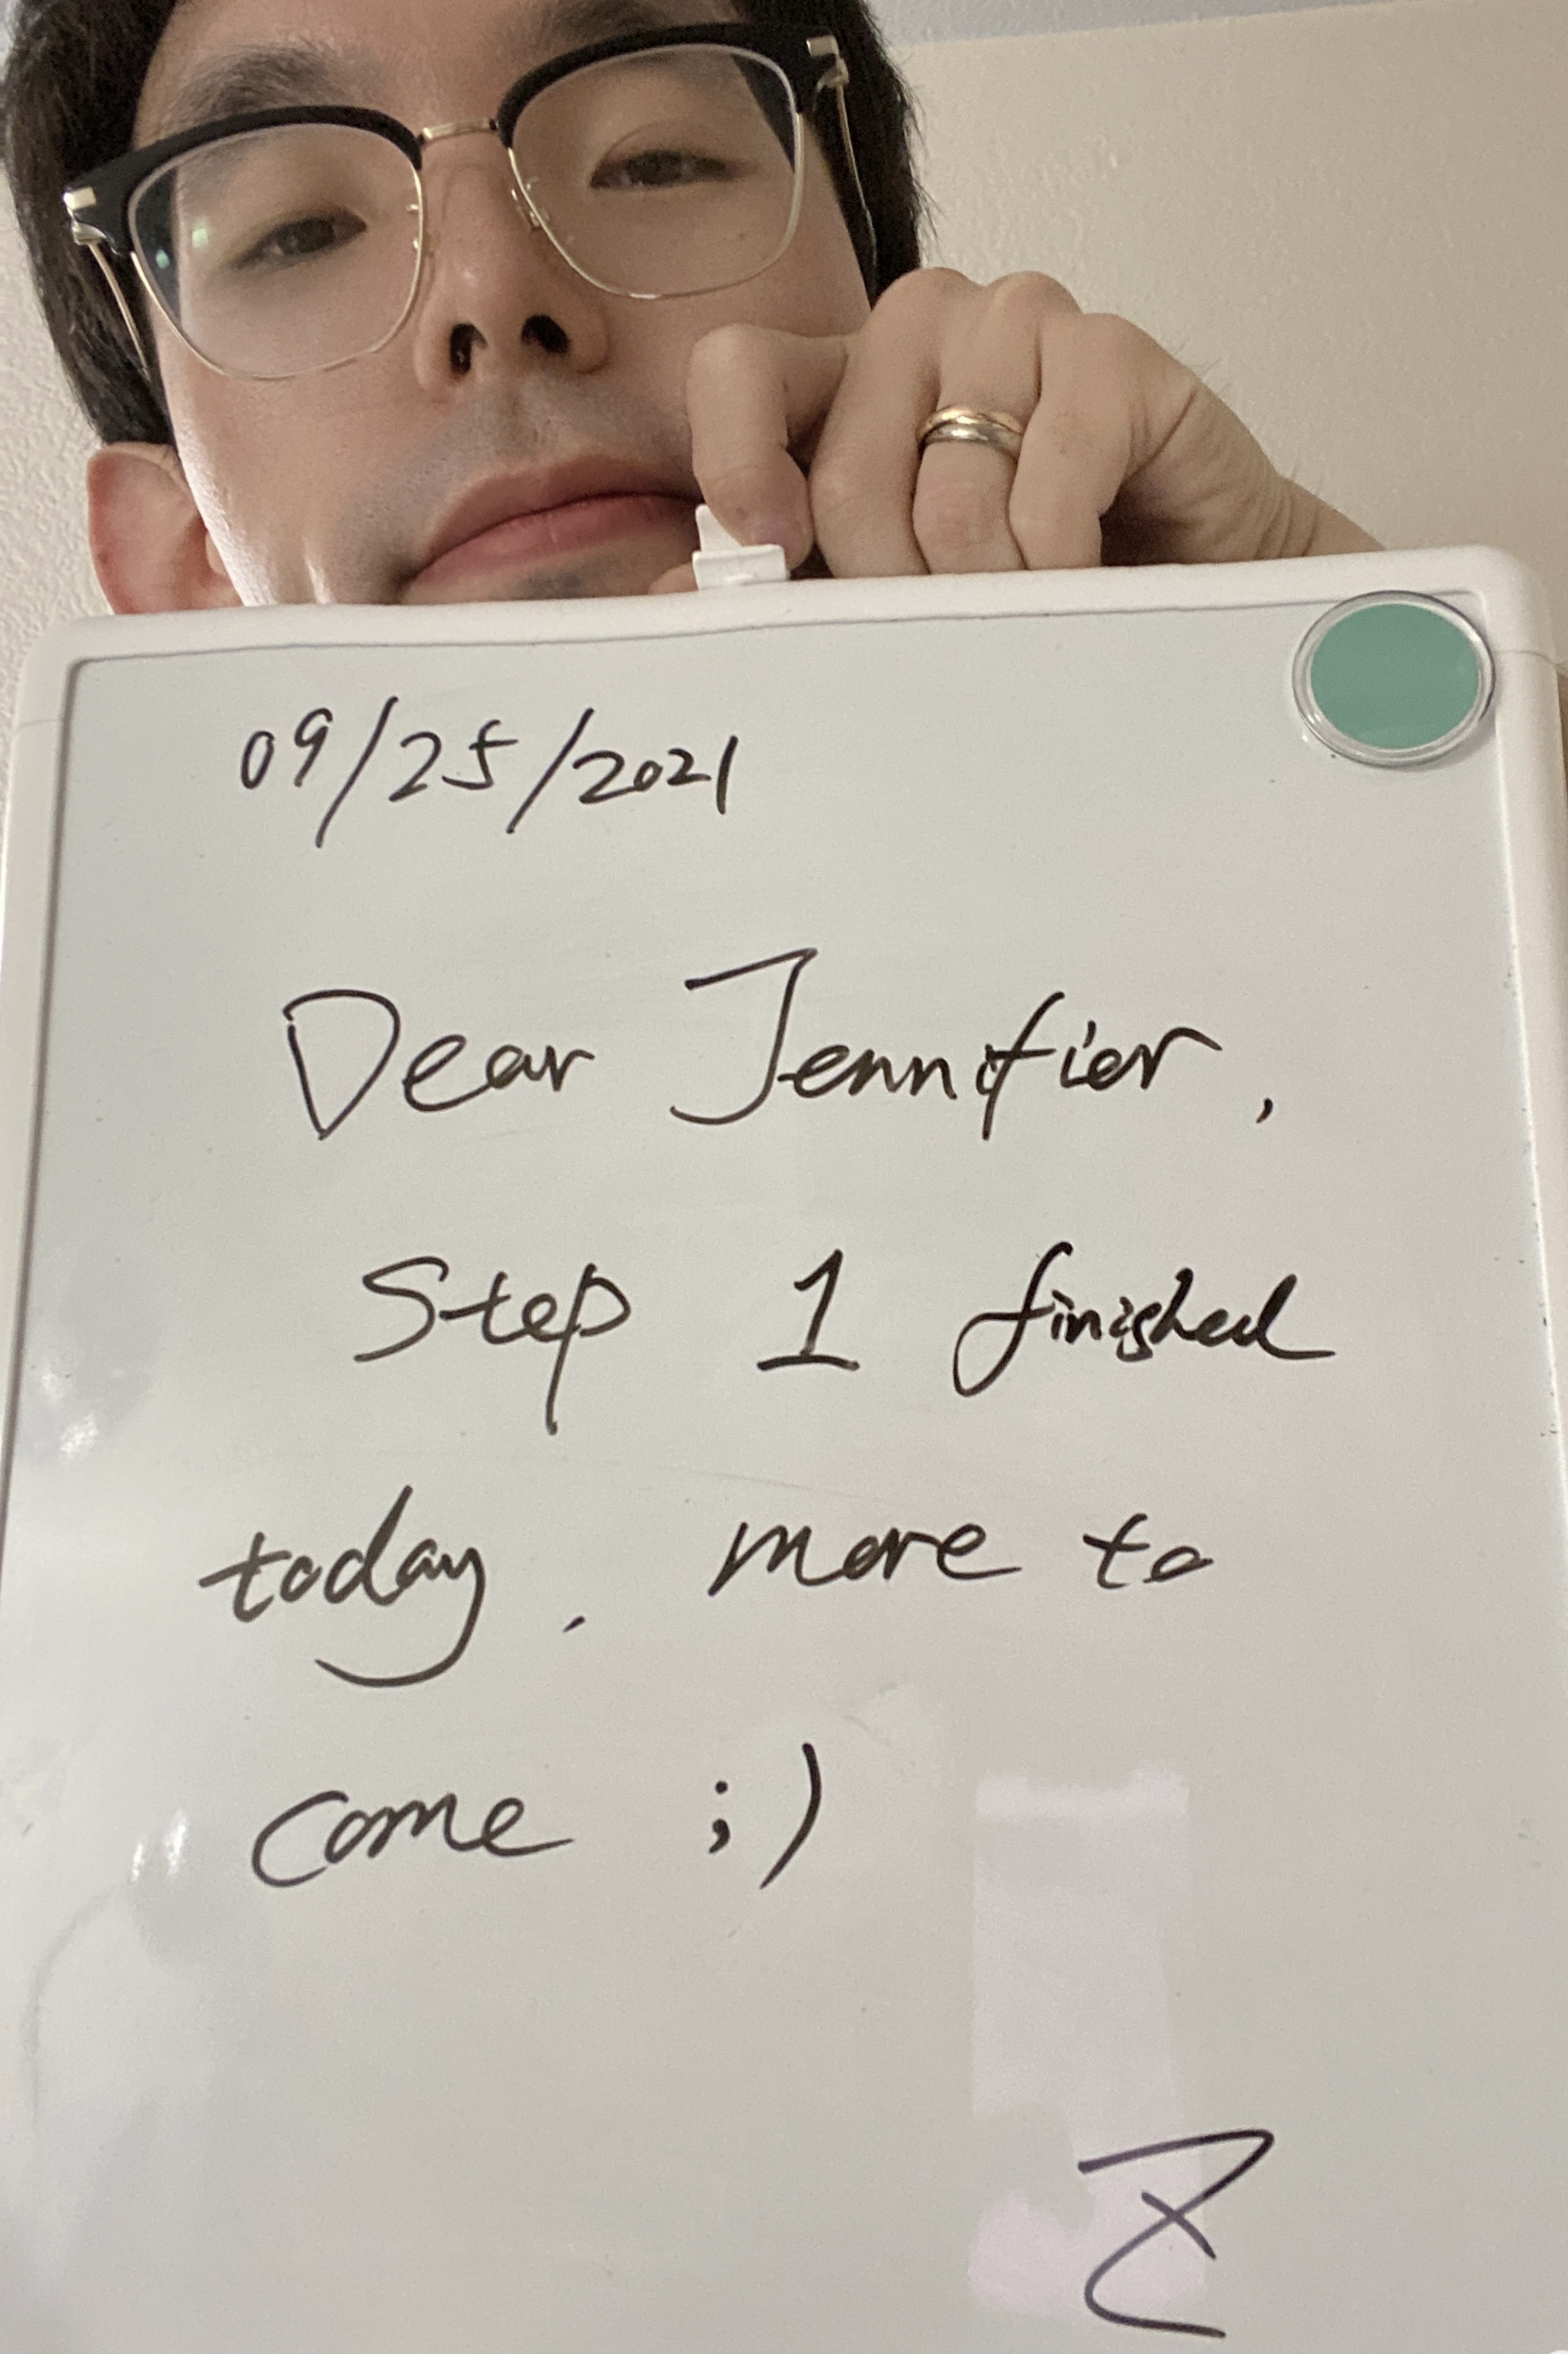 09/25/2021
Dear Jennifier,
Step 1 finished
today. more to
come ;)
Z